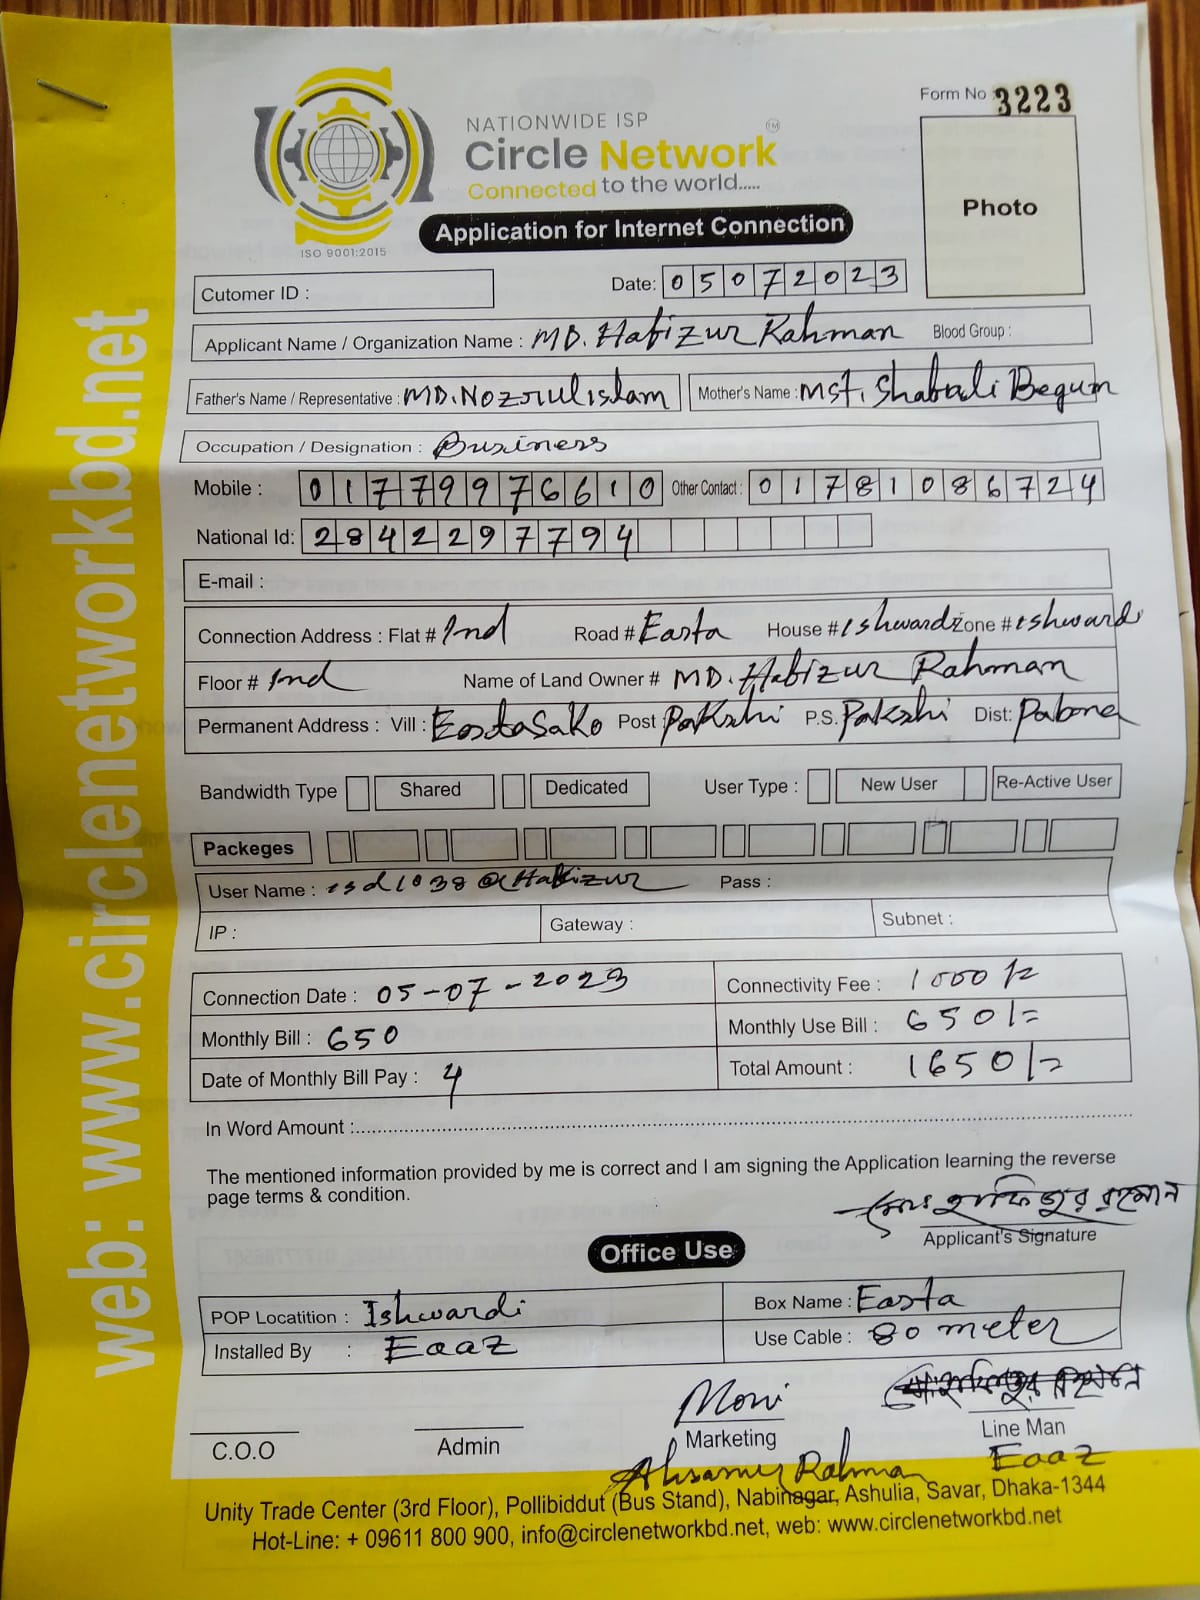 Form No 3223
NATIONWIDE ISP
Circle Network TM
Connected to the world.....
ISO 9001:2015
Photo
Application for Internet Connection
Cutomer ID :
Date: 05072023
Applicant Name / Organization Name : MD. Hafizur Rahman Blood Group :
Father's Name / Representative : MD. Nozrulislam Mother's Name : Mst. Shabali Begum
Occupation / Designation : Business
Mobile : 01779976610 Other Contact : 01781086724
National Id: 2842297794
E-mail :
Connection Address : Flat # 2nd Road # Easta House # Ishwardi Zone # Ishwardi
Floor # 2nd Name of Land Owner # MD. Hafizur Rahman
Permanent Address : Vill : EastaSako Post : Pakshi P.S. Pakshi Dist: Pabna
Bandwidth Type Shared Dedicated User Type : New User Re-Active User
Packeges
User Name : isd1038@Hafizur Pass :
IP : Gateway : Subnet :
Connection Date : 05-07-2023 Connectivity Fee : 1000/=
Monthly Bill : 650 Monthly Use Bill : 650/=
Date of Monthly Bill Pay : 4 Total Amount : 1650/=
In Word Amount :
The mentioned information provided by me is correct and I am signing the Application learning the reverse
page terms & condition.
মোঃ হাফিজুর রহমান
Applicant's Signature
Office Use
POP Locatition : Ishwardi Box Name : Easta
Installed By : Eaaz Use Cable : 80 meter
Moni
C.O.O Admin Marketing Line Man
Ahsanur Rahman Eaaz
Unity Trade Center (3rd Floor), Pollibiddut (Bus Stand), Nabinagar, Ashulia, Savar, Dhaka-1344
Hot-Line: + 09611 800 900, info@circlenetworkbd.net, web: www.circlenetworkbd.net
web: www.circlenetworkbd.net